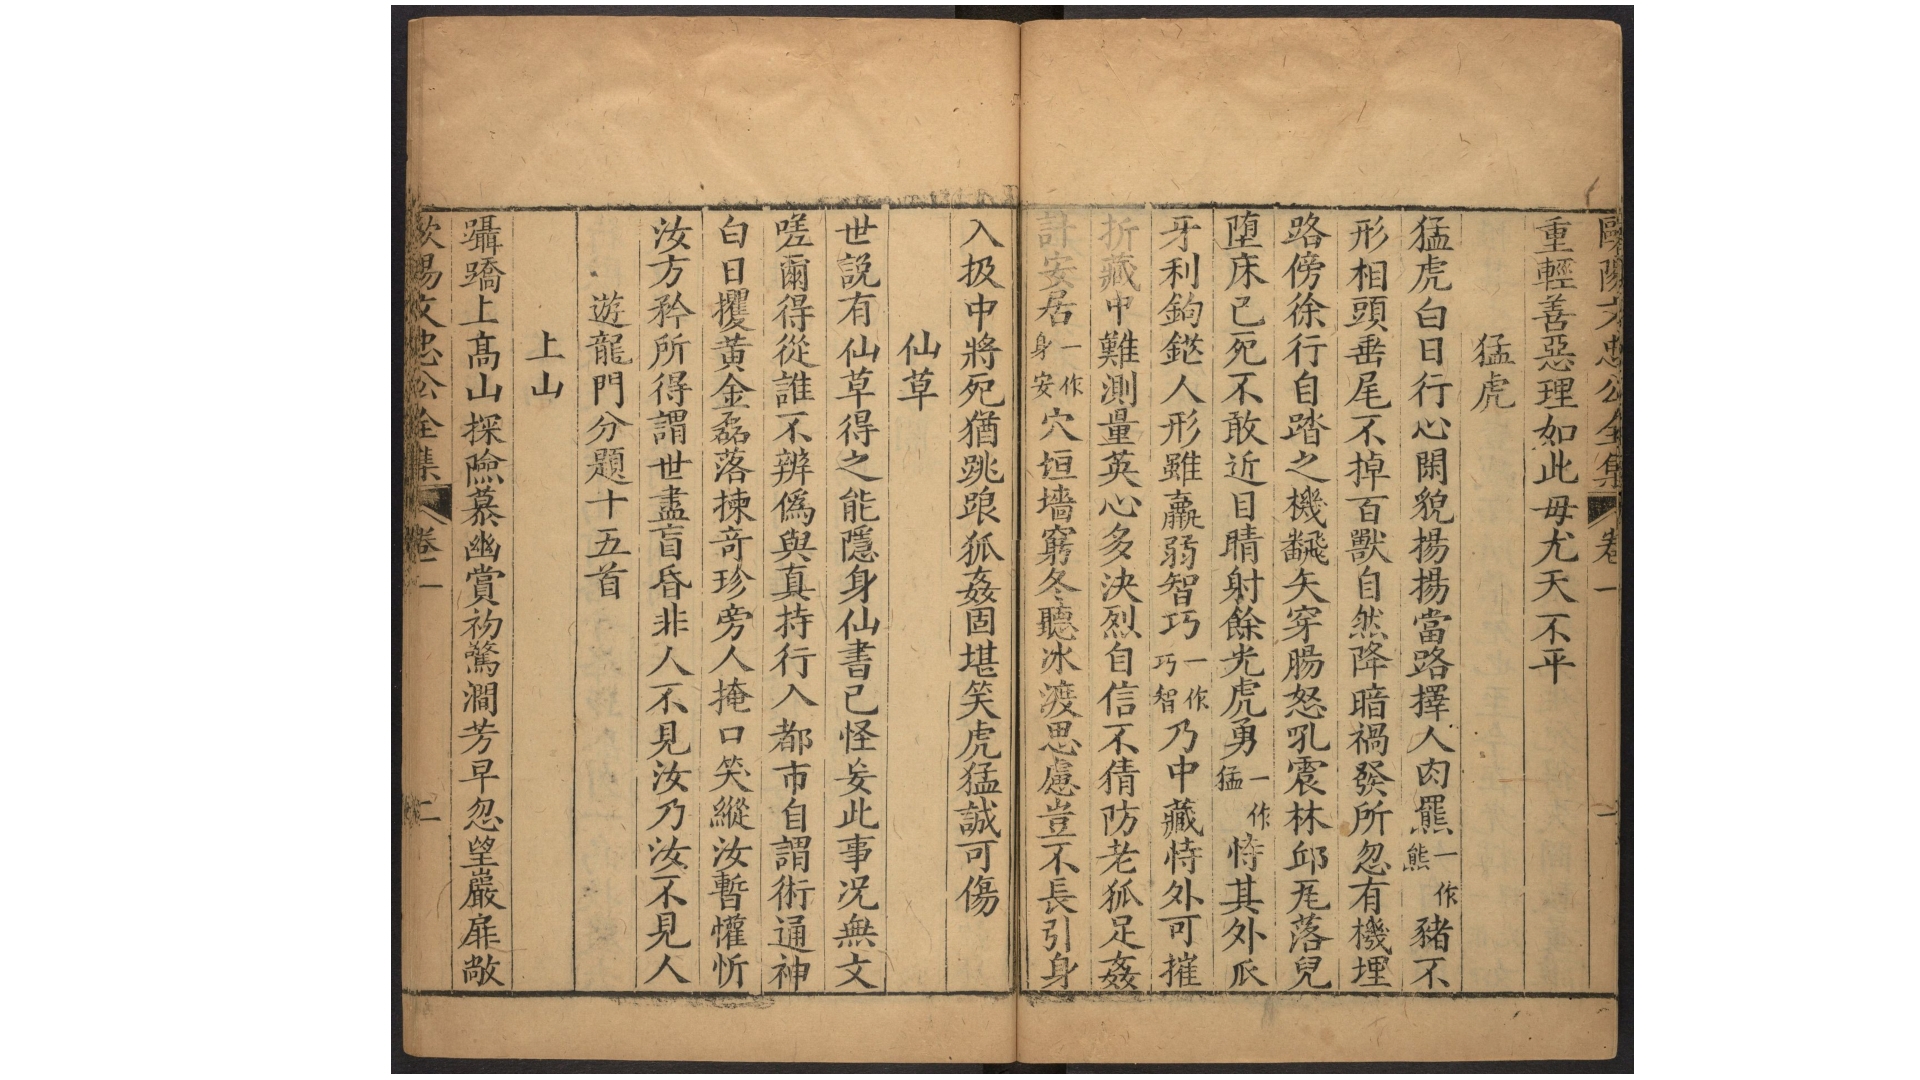 歐陽文忠公全集 卷一
重輕善惡理如此毋尤天不平
猛虎
猛虎白日行心閑貌揚揚當路擇人肉羆一作熊豬不
形相頭垂尾不掉百獸自然降暗禍發所忽有機埋
路傍徐行自踏之機飜矢穿腸怒吼震林邱瓦落兒
墮床已死不敢近目睛射餘光虎勇一作猛恃其外爪
牙利鉤鋩人形雖羸弱智巧一作巧智乃中藏恃外可摧
折藏中難測量英心多決烈自信不猜防老狐足姦
計安居一作身安穴垣墻窮冬聽冰渡思慮豈不長引身
入扱中將死猶跳踉狐姦固堪笑虎猛誠可傷
仙草
世說有仙草得之能隱身仙書已怪妄此事况無文
嗟爾得從誰不辨僞與真持行入都市自謂術通神
白日攫黄金磊落揀竒珍旁人掩口笑縱汝暫懽忻
汝方矜所得謂世盡盲昏非人不見汝乃汝不見人
遊龍門分題十五首
上山
躡蹻上高山探險慕幽賞初驚澗芳早忽望巖扉敞
歐陽文忠公全集 卷一 二